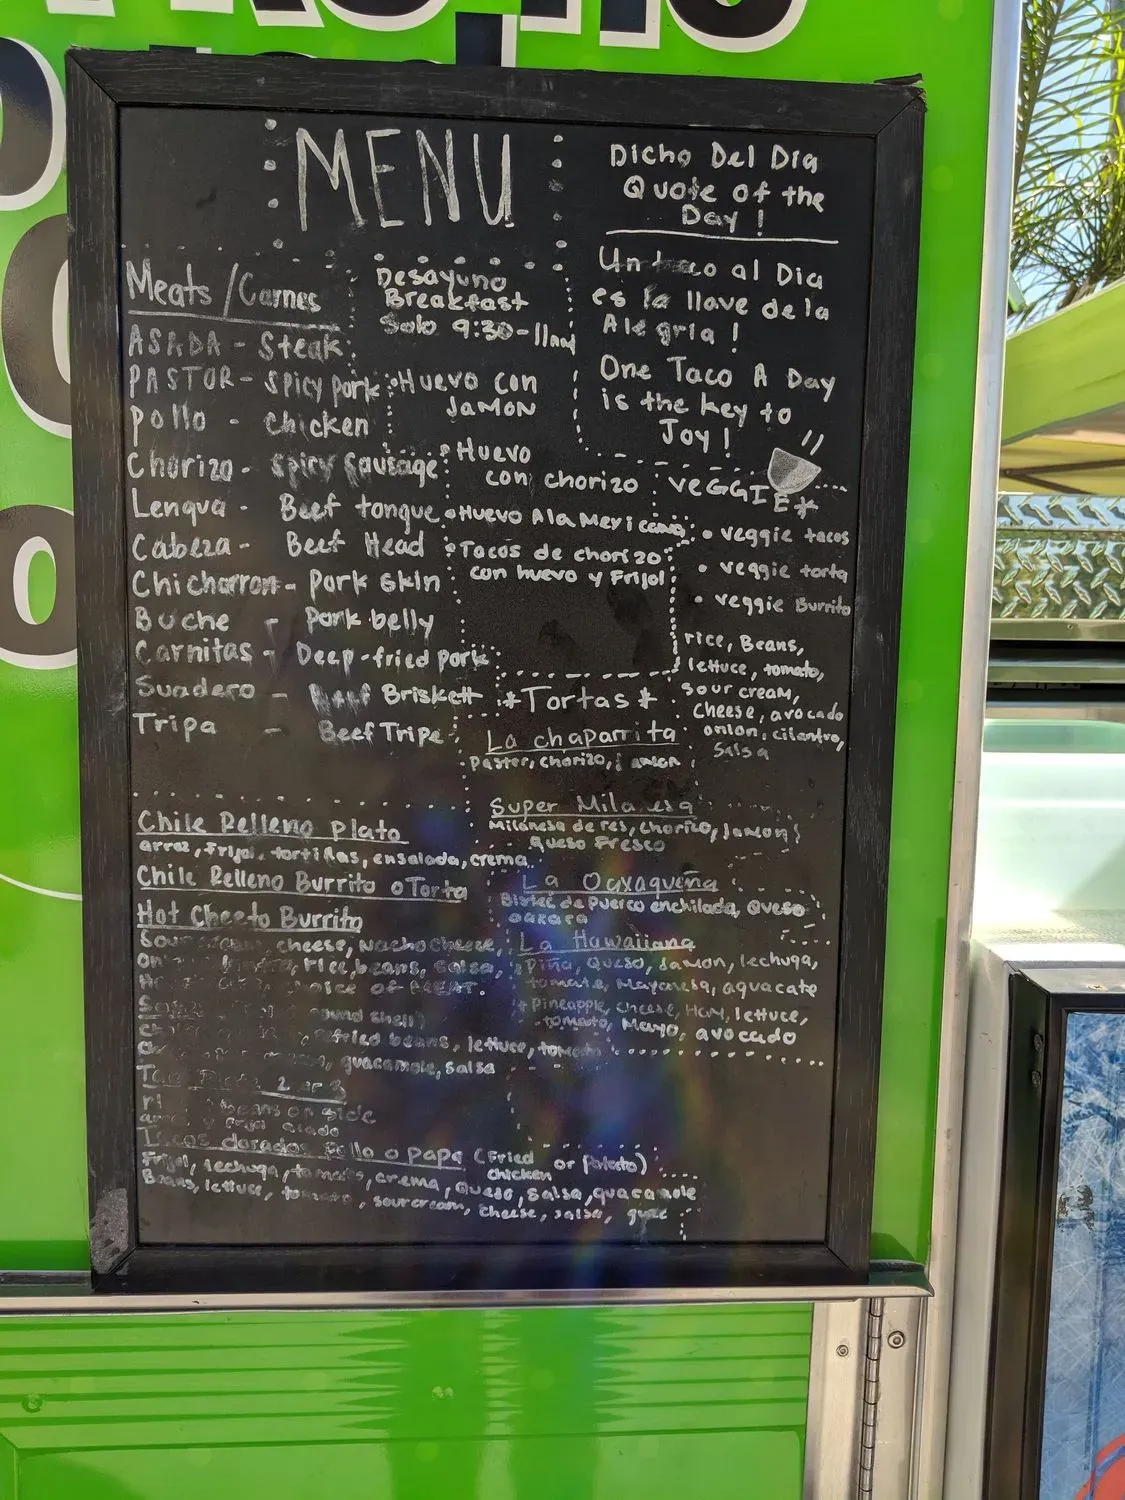 MENU
Meats/Carnes
ASADA - Steak
PASTOR - Spicy pork
Pollo - Chicken
Chorizo - Spicy Sausage
Lengua - Beef tongue
Cabeza - Beef Head
Chicharron - Pork Skin
Buche - Pork belly
Carnitas - Deep-fried pork
Suadero - Beef Briskett
Tripa - Beef Tripe
Desayuno
Breakfast
Solo 9:30-11am
Huevo con
Jamon
Huevo
con chorizo
Huevo Ala Mexicana
Tacos de chorizo
con huevo y Frijol
Dicho Del Dia
Quote of the
Day!
Un taco al Dia
es la llave de la
Alegria!
One Taco A Day
is the key to
Joy!
VEGGIE*
veggie tacos
veggie torta
veggie Burrito
rice, Beans,
lettuce, tomato,
sour cream,
cheese, avocado
onion, cilantro,
salsa
*Tortas*
La chaparrita
Pastor, chorizo, jamon
Super Milanesa
Milanesa de res, chorizo, Jamon,
Queso Fresco
La Oaxaqueña
Bistec de Puerco enchilada, Queso
oaxaca
La Hawaiiana
Piña, Queso, Jamon, lechuga,
tomate, Mayonesa, aguacate
*Pineapple, cheese, Ham, lettuce,
tomato, Mayo, avocado
Chile Relleno Plato
arroz, Frijol, tortillas, ensalada, crema
Chile Relleno Burrito o Torta
Hot Cheeto Burrito
Sour cream, cheese, Nacho Cheese,
rice, beans, salsa,
choice of MEAT.
shell)
fried beans, lettuce, tomato
guacamole, salsa
Taco Plate 2 or 3
beans on side
y frijol alado
Tacos dorados Pollo o papa (Fried chicken or Potato)
Frijol, lechuga, tomate, crema, Queso, salsa, guacamole
Beans, lettuce, tomato, sour cream, cheese, salsa, guac